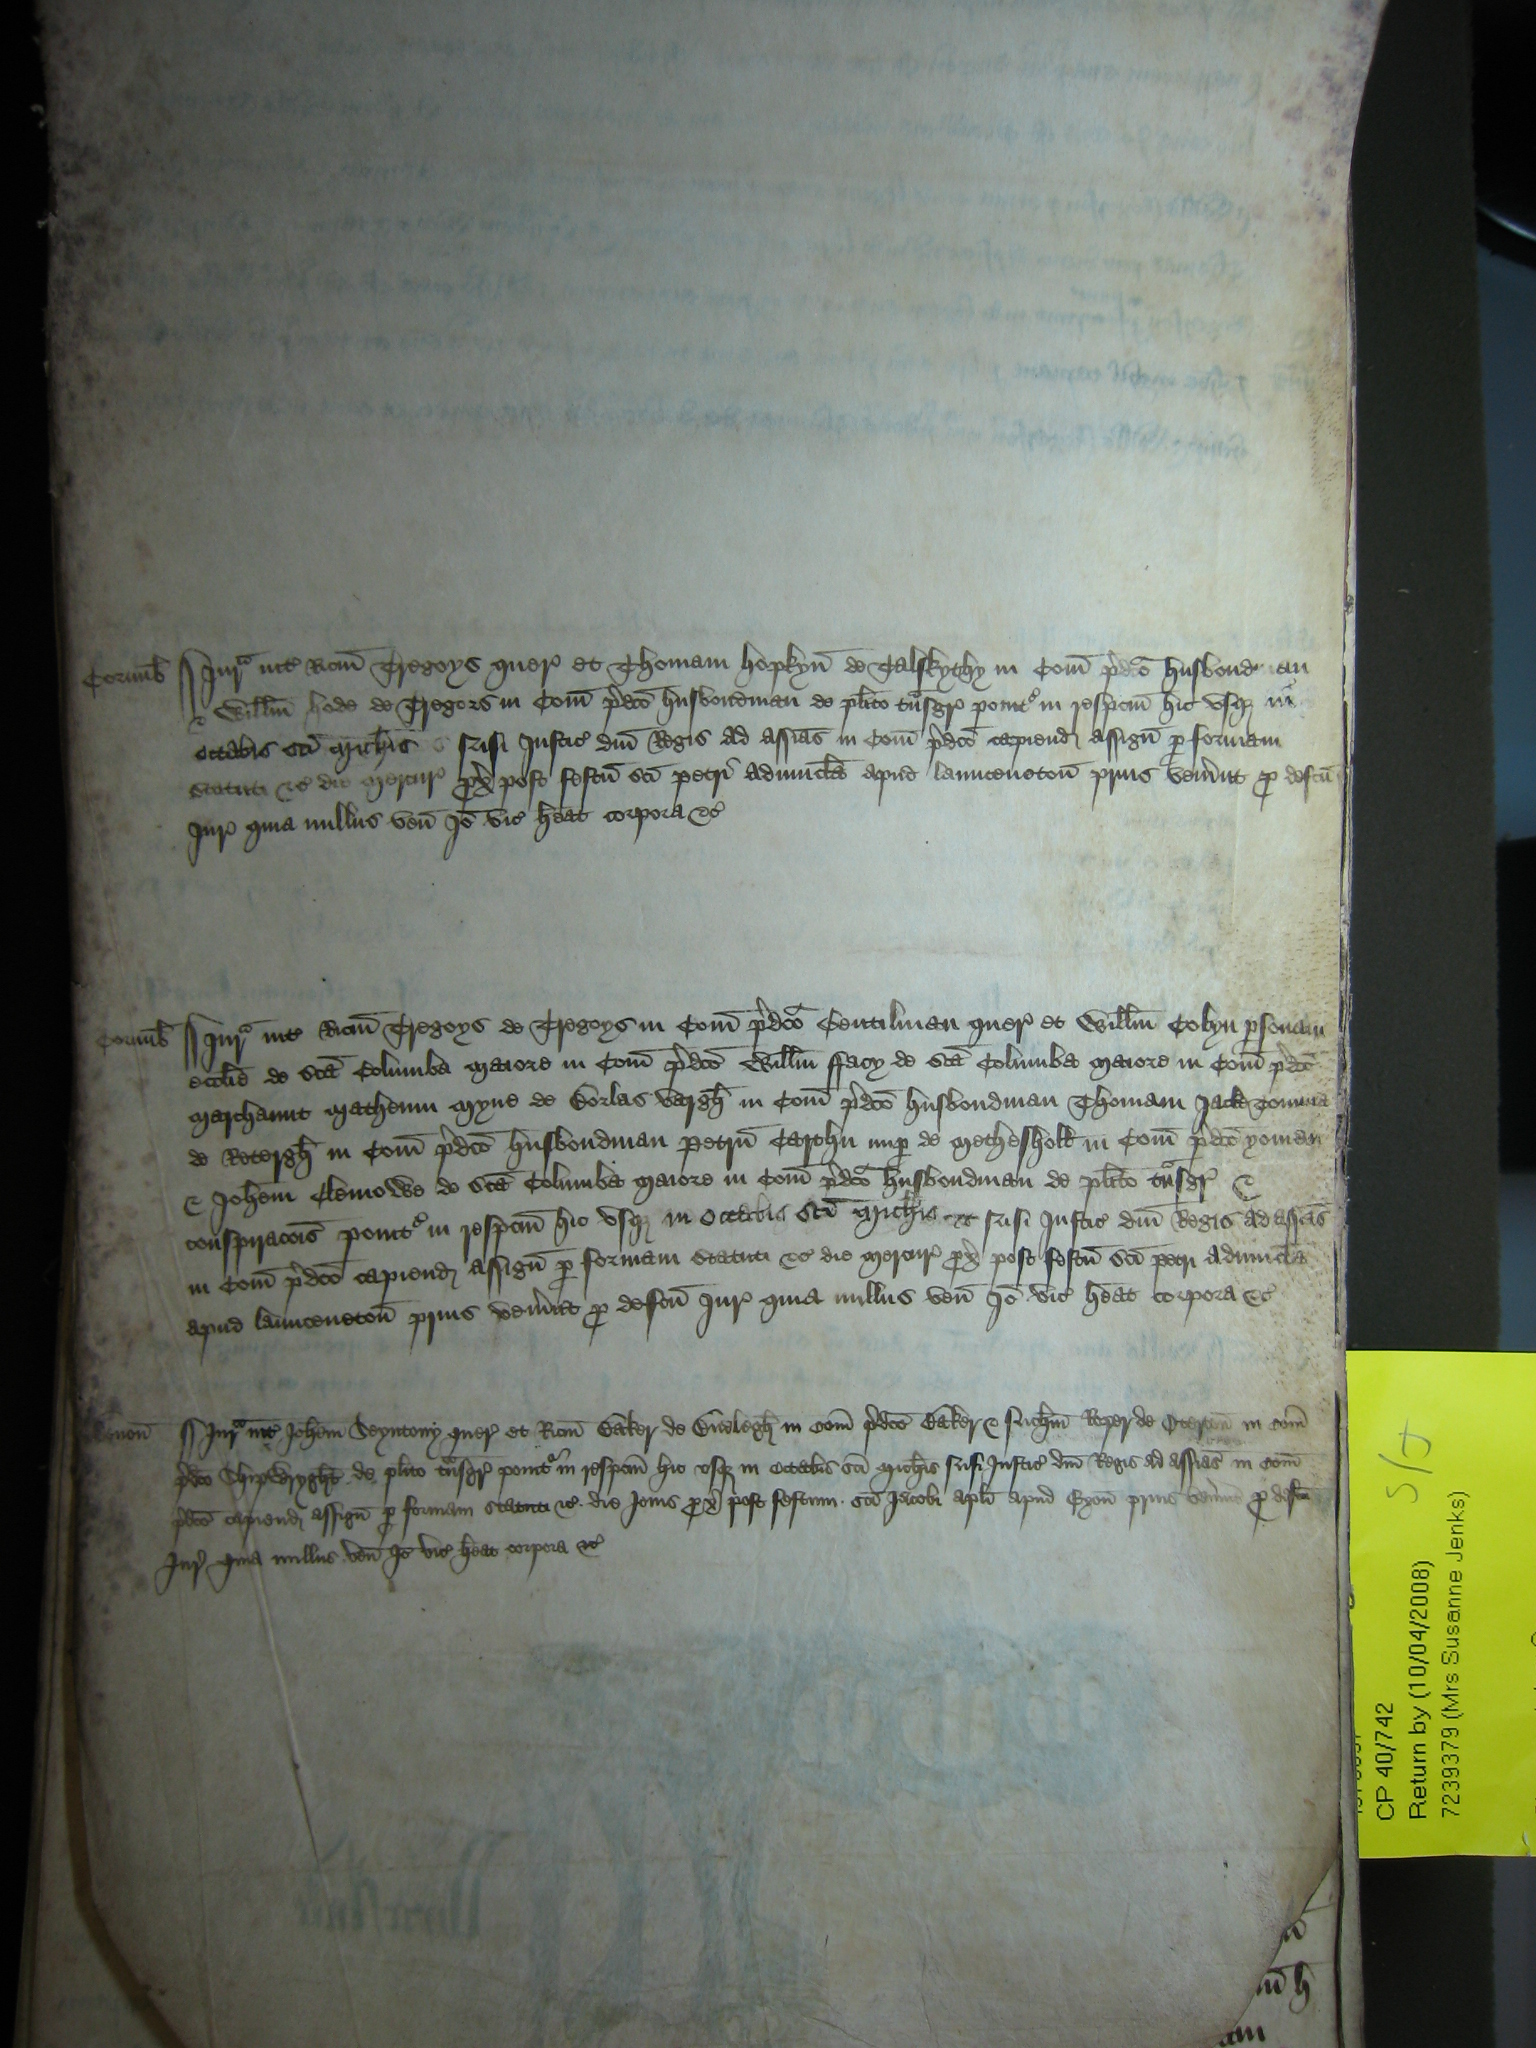 Cornub Jur̄ int̄ Ricm̄ Tregoys quer̄ et Thomam Hopkyn de Talskythy in Com̄ p̄dc̄o husbondman
& Willm̄ Hode de Tregors in Com̄ p̄dc̄o husbondman de plīto tn̄sgr̄ ponit̄ in respcm̄ hic usq, in
octabis sc̄i Mich̄is nisi Justic̄ dn̄i Regis ad assīas in Com̄ p̄dc̄o capiend assign̄ p̄ formam
statuti &c̄ die mercur̄ p̄x̄ post festū sc̄i petri Advincl̄a apud launceneton̄ prius ven̄int p̄ defcū
Jur̄ quia nullus ven̄ Jō vic̄ h̄eat corpora &c̄
Cornub Jur̄ int̄ Ricm̄ Tregoys de Tregoys in Com̄ p̄dc̄o Gentilman quer̄ et Willm̄ Colyn p̄sonam
eccl̄ie de Sc̄a Columba maiore in Com̄ p̄dc̄o Willm̄ ffacy de Sc̄a Columba maiore in Com̄ p̄dc̄o
marchaunt Matheum Myne de Borlas vargh̄ in Com̄ p̄dc̄o husbondman Thomam Jacke Tomma
de Retergh̄ in Com̄ p̄dc̄o husbondman Petrū Carthu nup̄ de Methesholl in Com̄ p̄dc̄o yoman
& Joh̄em Clemowe de Sc̄a Columba maiore in Com̄ p̄dc̄o husbondman de plīto tn̄sgr̄ &
conspiracōis ponit̄ in respcm̄ hic usq, in octabis Sc̄i Mich̄is nisi Justic̄ dn̄i Regis ad assīas
in Com̄ p̄dc̄o capiend assign̄ p̄ formam statuti &c̄ die mercur̄ p̄x̄ post festū Sc̄i petri Advincl̄a
apud launceneton̄ prius ven̄int p̄ defcū Jur̄ quia nullus ven̄ Jō vic̄ h̄eat corpora &c̄
Devon̄ Jur̄ int̄ Joh̄em quer̄ et Ricm̄ Baker de Budelegh̄ in Com̄ p̄dc̄o Baker & Mich̄m Roper de in Com̄
p̄dc̄o Shipwryght de plīto tn̄sgr̄ ponit̄ in respcm̄ hic usq, in octabis sc̄i Mich̄is nisi Justic̄ dn̄i Regis ad assīas in Com̄
p̄dc̄o capiend assign̄ p̄ formam statuti &c̄ die Jovis p̄x̄ post festum sc̄i Jacobi apl̄i apud Exon̄ prius ven̄int p̄ defcū
Jur̄ quia nullus ven̄ Jō vic̄ h̄eat corpora &c̄
S/J
CP 40/742
Return by (10/04/2008)
7239379 (Mrs Susanne Jenks)